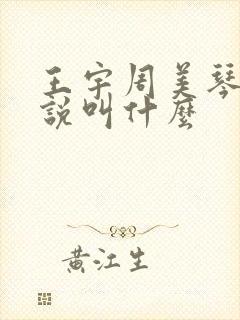 王宇周美琴
說叫什麼
黃江生